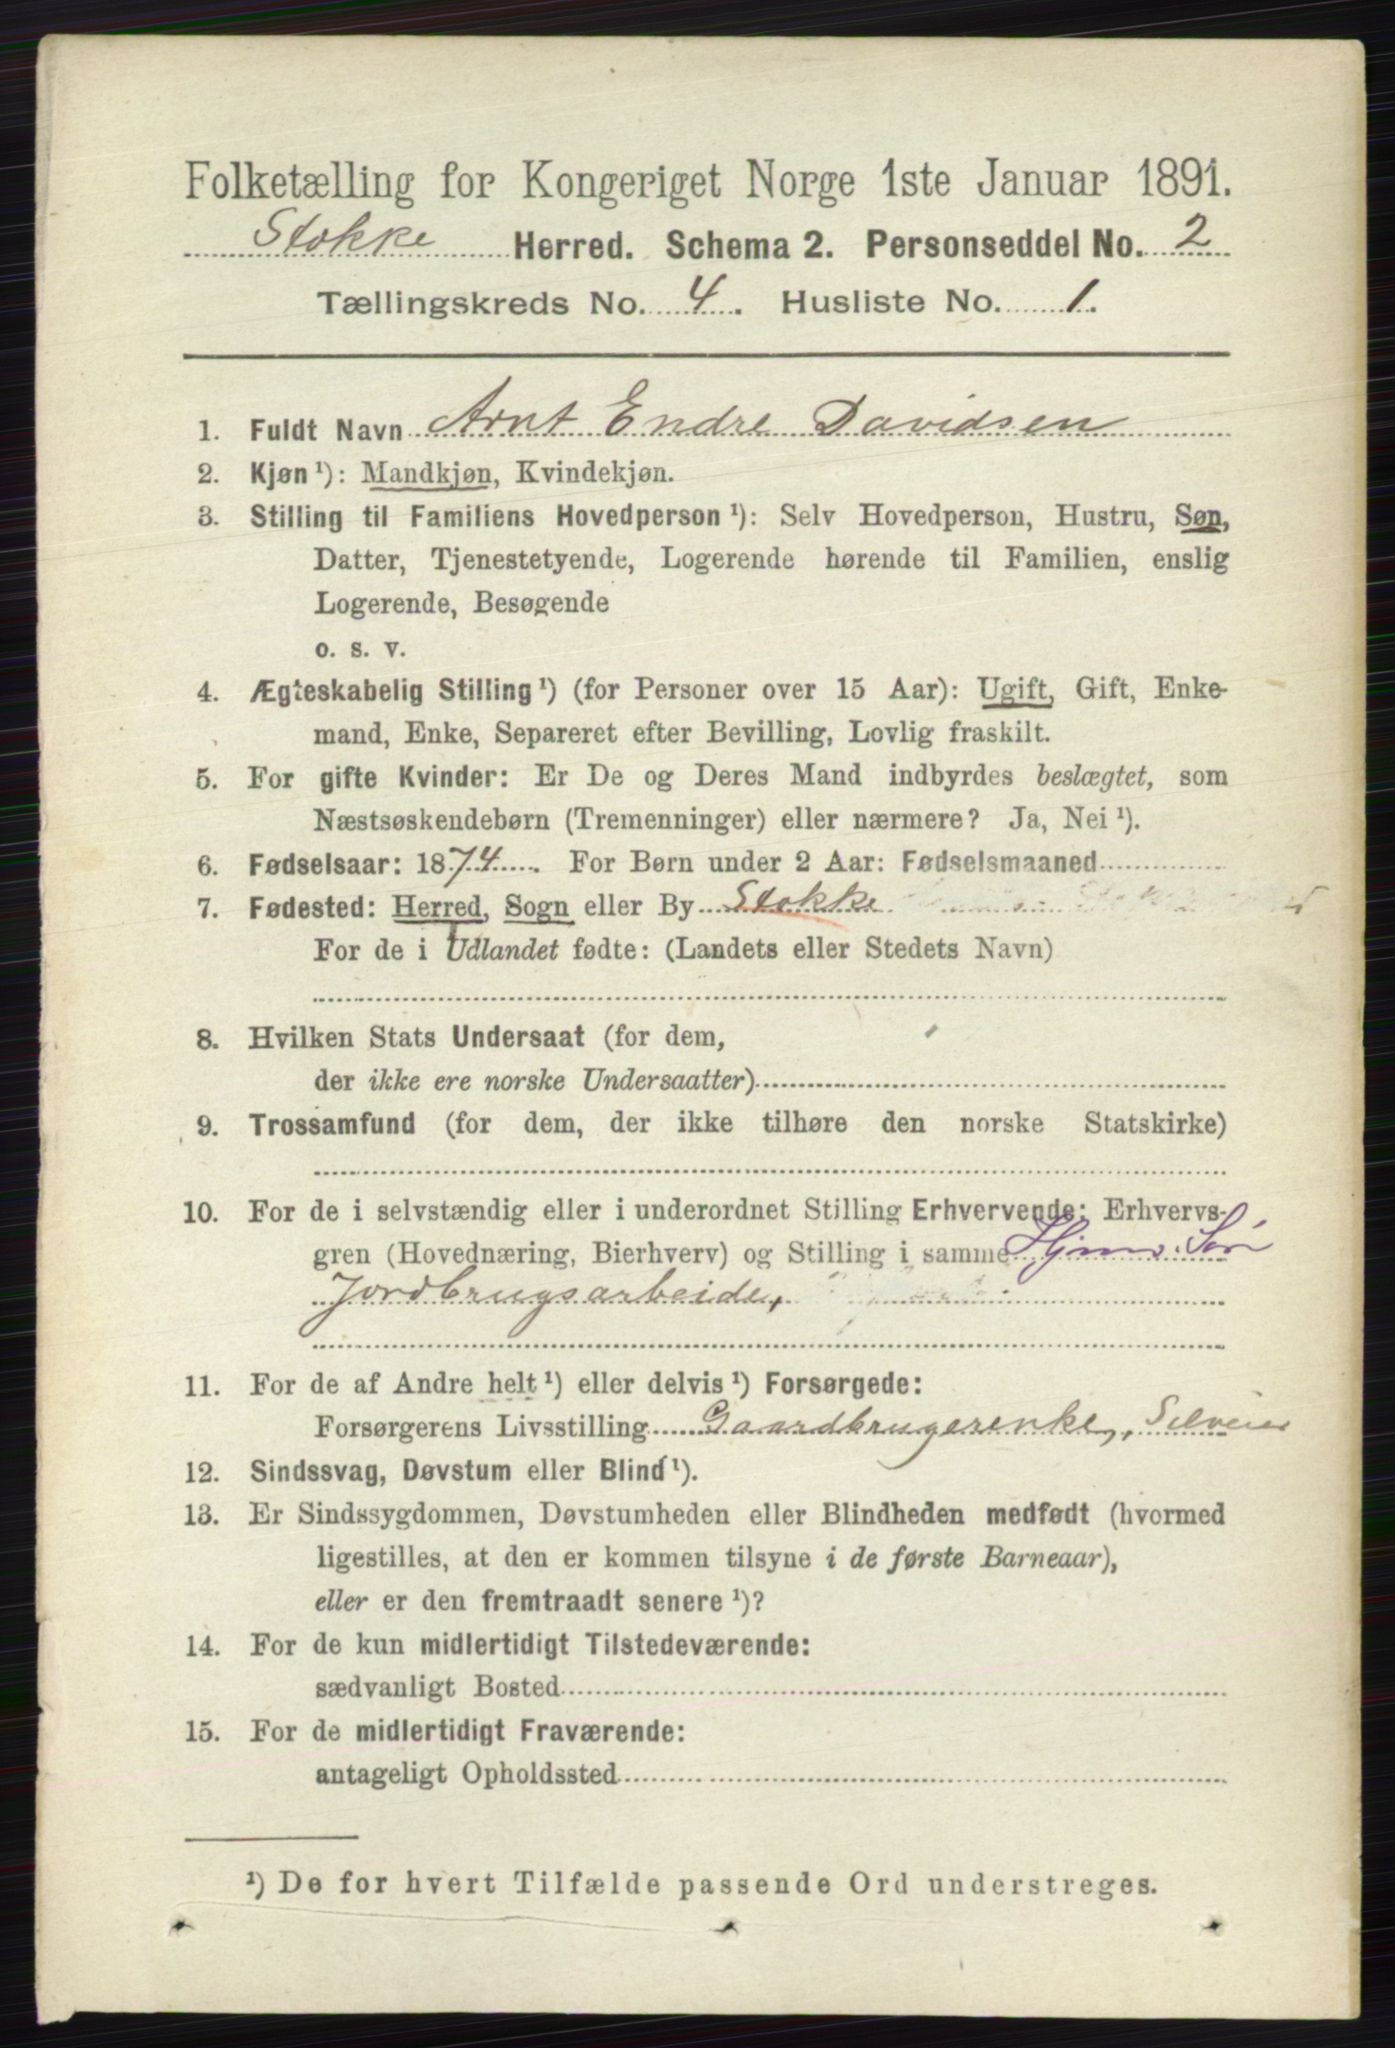 Folketælling for Kongeriget Norge 1ste Januar 1891.
Stokke Herred. Schema 2. Personseddel No. 2
Tællingskreds No. 4. Husliste No. 1.
1. Fuldt Navn Arnt Endre Davidsen
2. Kjøn ¹): Mandkjøn, Kvindekjøn.
3. Stilling til Familiens Hovedperson ¹): Selv Hovedperson, Hustru, Søn,
Datter, Tjenestetyende, Logerende hørende til Familien, enslig
Logerende, Besøgende
o. s. v.
4. Ægteskabelig Stilling ¹) (for Personer over 15 Aar): Ugift, Gift, Enke-
mand, Enke, Separeret efter Bevilling, Lovlig fraskilt.
5. For gifte Kvinder: Er De og Deres Mand indbyrdes beslægtet, som
Næstsøskendebørn (Tremenninger) eller nærmere? Ja, Nei ¹).
6. Fødselsaar: 1874. For Børn under 2 Aar: Fødselsmaaned
7. Fødested: Herred, Sogn eller By Stokke
For de i Udlandet fødte: (Landets eller Stedets Navn)
8. Hvilken Stats Undersaat (for dem,
der ikke ere norske Undersaatter)
9. Trossamfund (for dem, der ikke tilhøre den norske Statskirke)
10. For de i selvstændig eller i underordnet Stilling Erhvervende: Erhvervs-
gren (Hovednæring, Bierhverv) og Stilling i samme
Jordbrugsarbeide,
11. For de af Andre helt ¹) eller delvis ¹) Forsørgede:
Forsørgerens Livsstilling Gaardbrugerenke, Selveier
12. Sindssvag, Døvstum eller Blind ¹).
13. Er Sindssygdommen, Døvstumheden eller Blindheden medfødt (hvormed
ligestilles, at den er kommen tilsyne i de første Barneaar),
eller er den fremtraadt senere ¹)?
14. For de kun midlertidigt Tilstedeværende:
sædvanligt Bosted
15. For de midlertidigt Fraværende:
antageligt Opholdssted
¹) De for hvert Tilfælde passende Ord understreges.